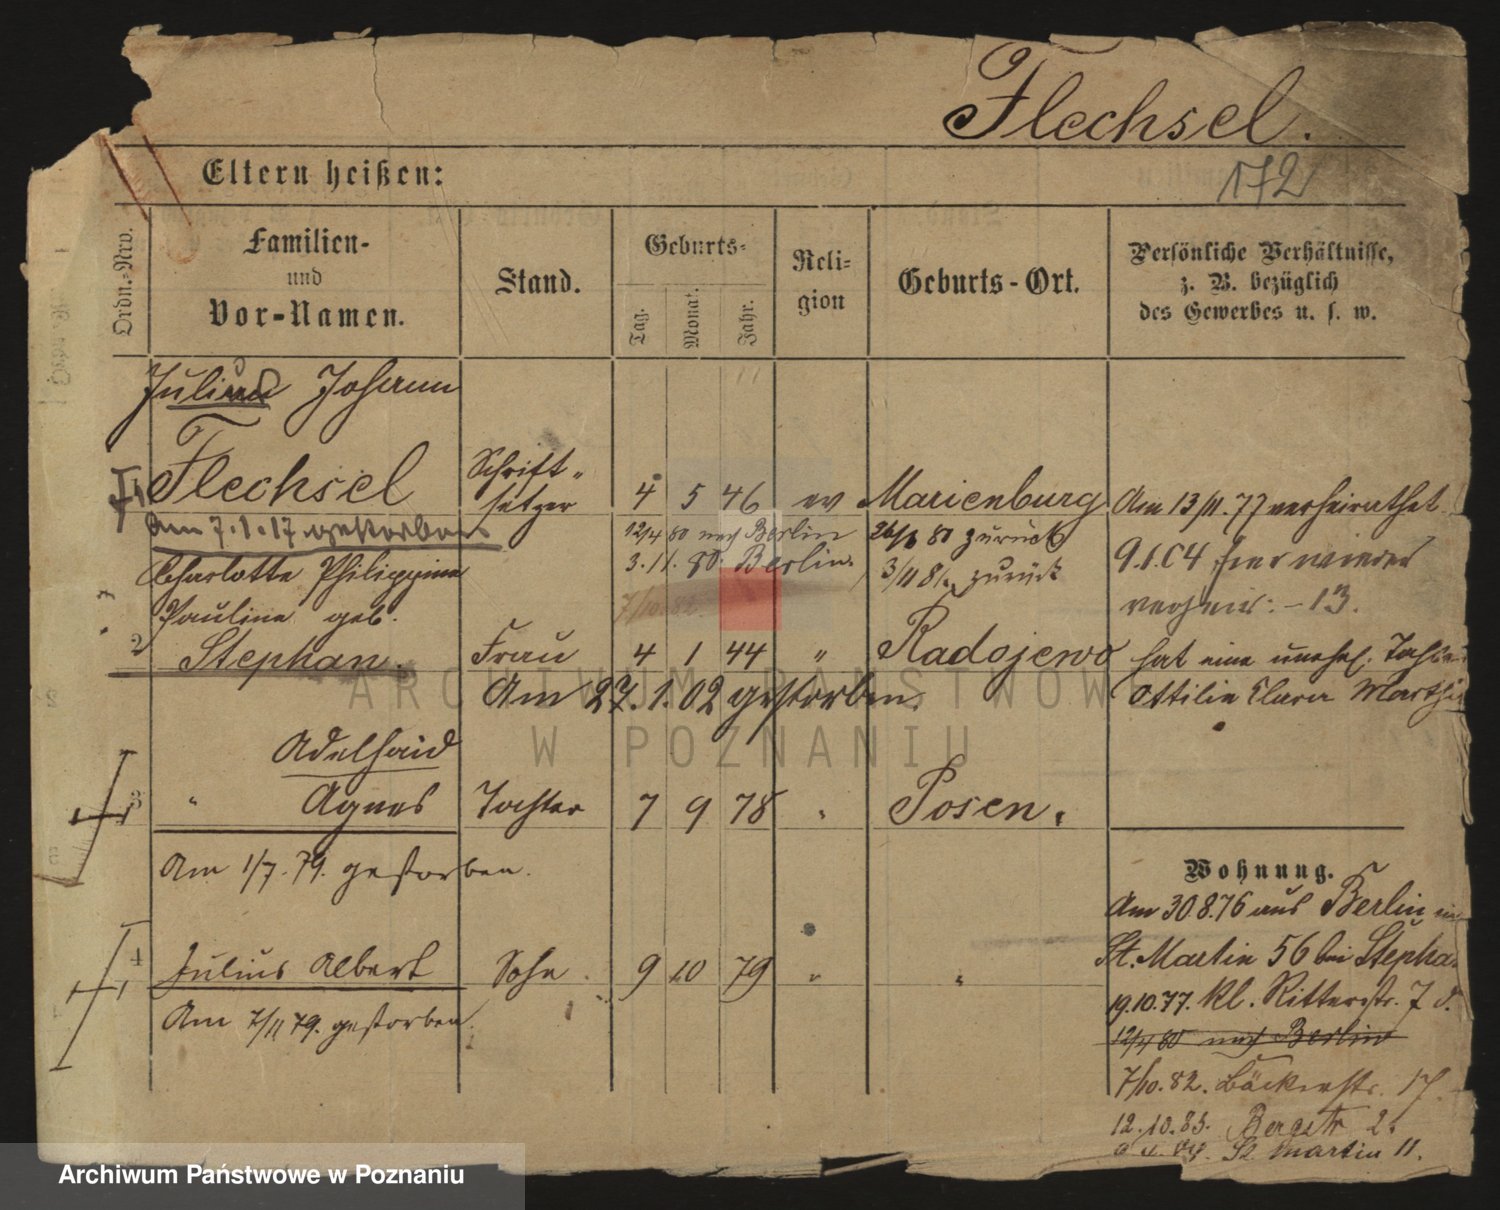 Flechsel.
172
Eltern heißen:
Ordn.-Nro.
Familien-
und
Vor-Namen.
Stand.
Geburts-
Tag.
Monat.
Jahr.
Reli-
gion
Geburts-Ort.
Persönliche Verhältnisse,
z. B. bezüglich
des Gewerbes u. s. w.
Julius Johann
Flechsel Schrift-
setzer 4 5 46 ev Marienburg Am 13/11. 77 verheirathet.
Am 7.1.17 gestorben
12/4 80 nach Berlin 26/8 80 zurück
3.11. 80. Berlin. 3/11 81 zurück
7/10. 82.
9.1.04 hier wieder
verheir: -13.
Charlotte Philippine
Pauline geb.
2 Stephan. Frau 4 1 44 " Radojewo hat eine unehel. Tochter
Ottilie Clara Martha
Am 27.1.02 gestorben.
Adelhaid
3 " Agnes Tochter 7 9 78 " Posen.
Am 1/7. 79. gestorben.
4 Julius Albert Sohn. 9 10 79 " "
Am 7/11 79. gestorben.
Wohnung.
Am 30.8.76 aus Berlin in
St. Martin 56 bei Stephan
19.10.77. kl. Ritterstr. 7
12/4 80 nach Berlin
7/10. 82. Bäckerstr. 17.
12.10.83. Bergstr 2.
St Martin 11.
ARCHIWUM PAŃSTWOWE
W POZNANIU
Archiwum Państwowe w Poznaniu